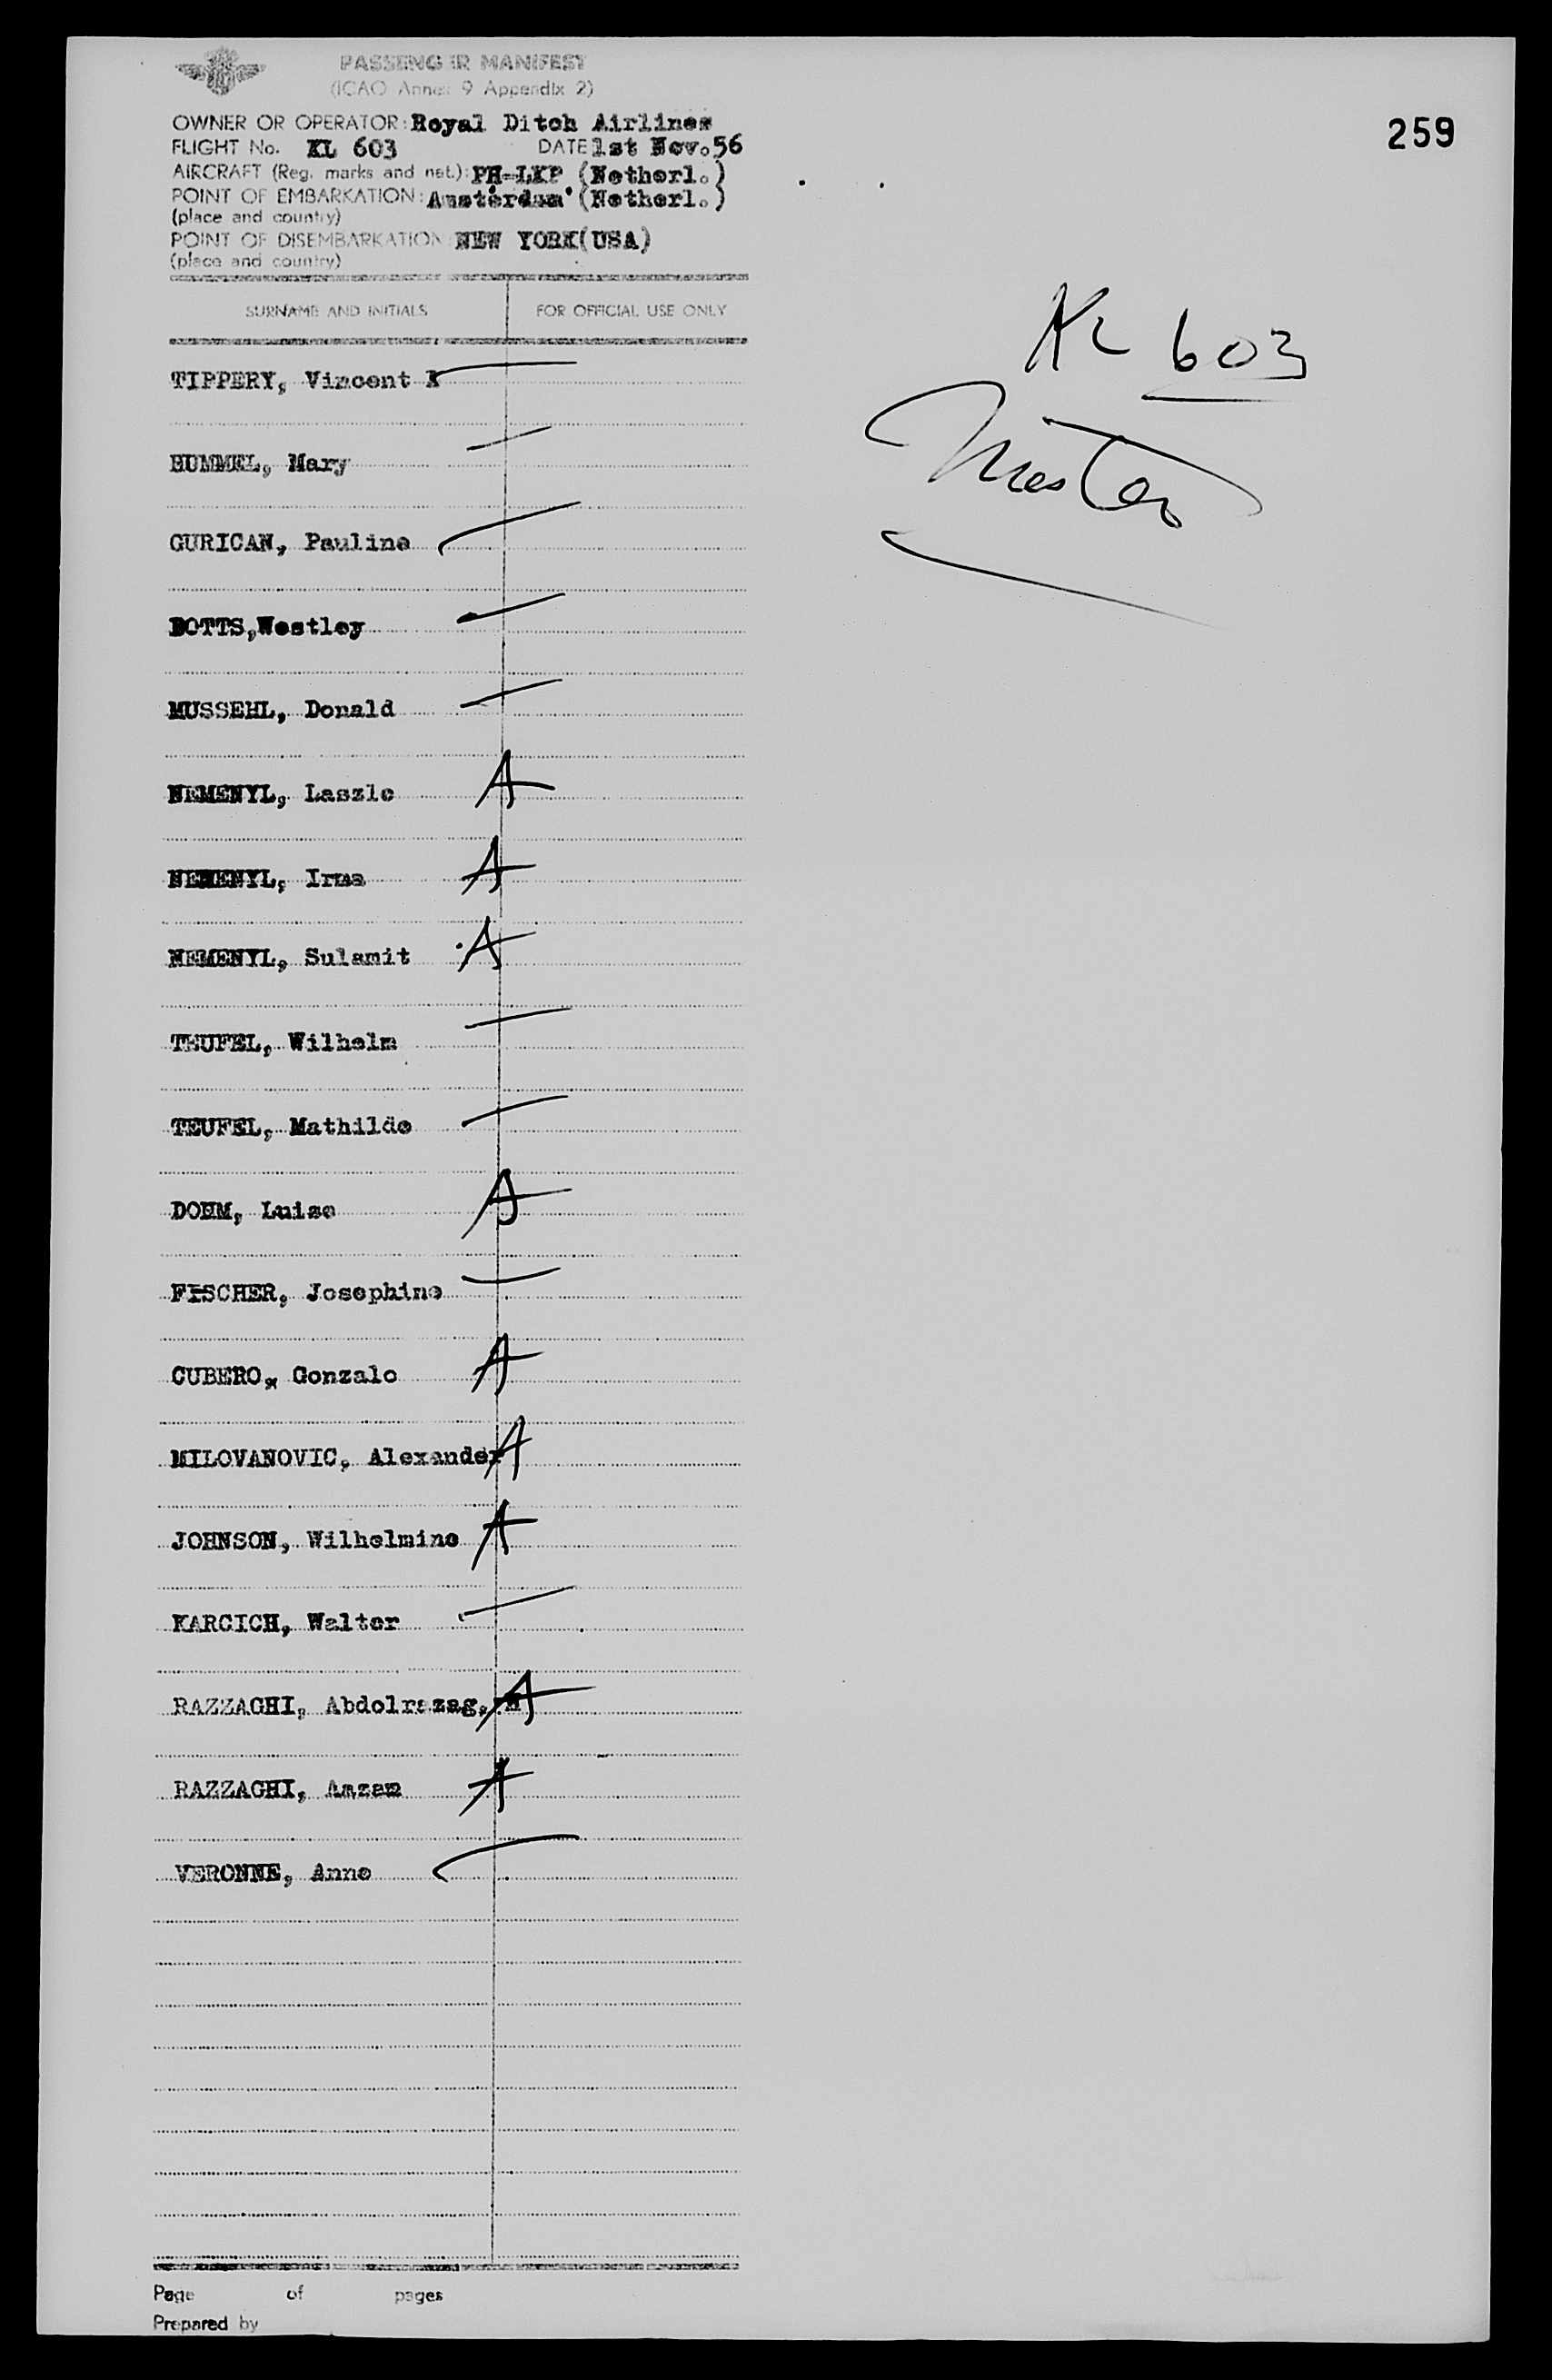 PASSENGER MANIFEST
(ICAO Annex 9 Appendix 2)
259
OWNER OR OPERATOR: Royal Ditch Airlines
FLIGHT No. KL 603 DATE 1st Nov.56
AIRCRAFT (Reg. marks and nat.): PH-LKP (Netherl.)
POINT OF EMBARKATION: Amsterdam (Netherl.)
(place and country)
POINT OF DISEMBARKATION NEW YORK(USA)
(place and country)
SURNAME AND INITIALS FOR OFFICIAL USE ONLY
KL 603
TIPPERY, Vincent
HUMMEL, Mary
GURICAN, Pauline
BOTTS,Westley
MUSSEHL, Donald
NEMENYL, Laszlo A
NEMENYL, Irma A
NEMENYL, Sulamit A
TEUFEL, Wilhelm
TEUFEL, Mathilde
DOHM, Luise A
FISCHER, Josephine
CUBERO, Gonzalo A
MILOVANOVIC, Alexander A
JOHNSON, Wilhelmine A
KARCICH, Walter
RAZZAGHI, Abdolrazag, A
RAZZAGHI, Aazam A
VERONNE, Anne
Page of pages
Prepared by